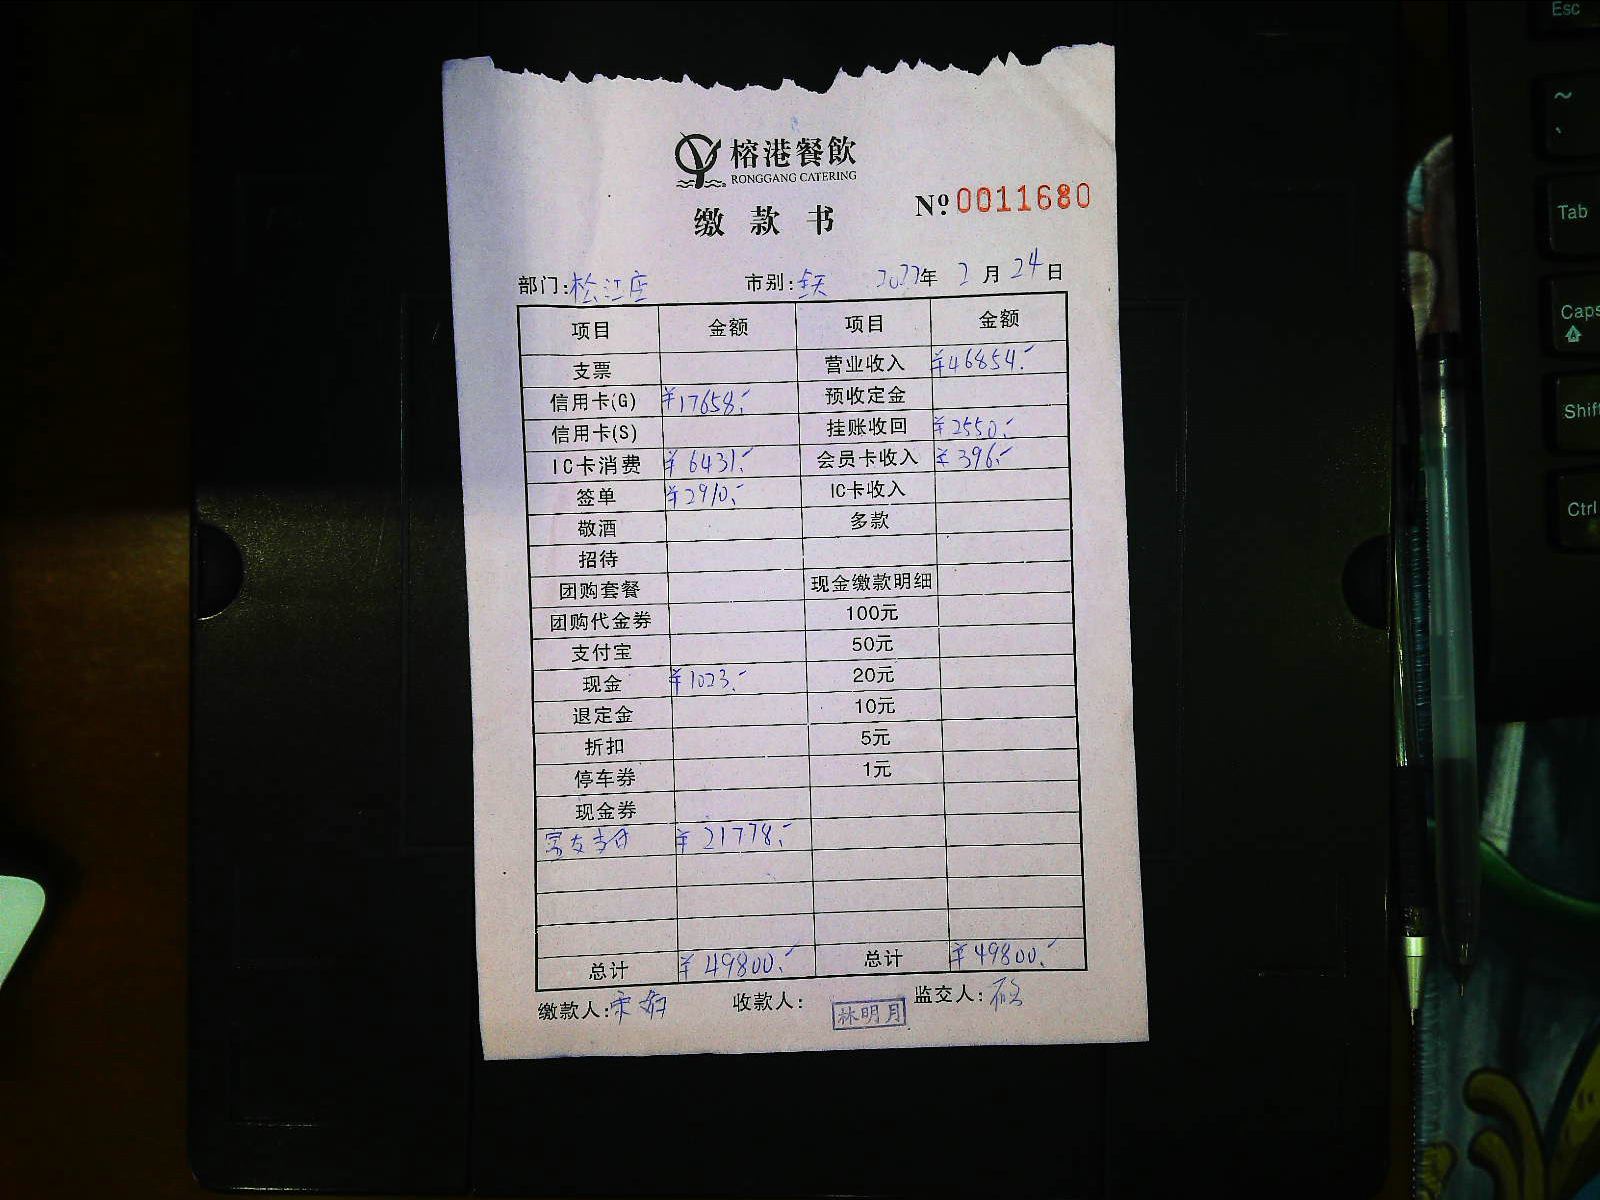 榕港餐飲
RONGGANG CATERING
缴款书
Nº 0011680
部门:松江店 市别:全天 2022年 2月 24日
项目 金额 项目 金额
支票 营业收入 ¥46854.-
信用卡(G) ¥17658.- 预收定金
信用卡(S) 挂账收回 ¥2550.-
IC卡消费 ¥6431.- 会员卡收入 ¥396.-
签单 ¥2910.- IC卡收入
敬酒 多款
招待
团购套餐 现金缴款明细
团购代金券 100元
支付宝 50元
现金 ¥1023.- 20元
退定金 10元
折扣 5元
停车券 1元
现金券
¥21778.-
总计 ¥49800.- 总计 ¥49800.-
缴款人: 收款人: 林明月 监交人:
Esc
~
`
Tab
Caps
Shift
Ctrl